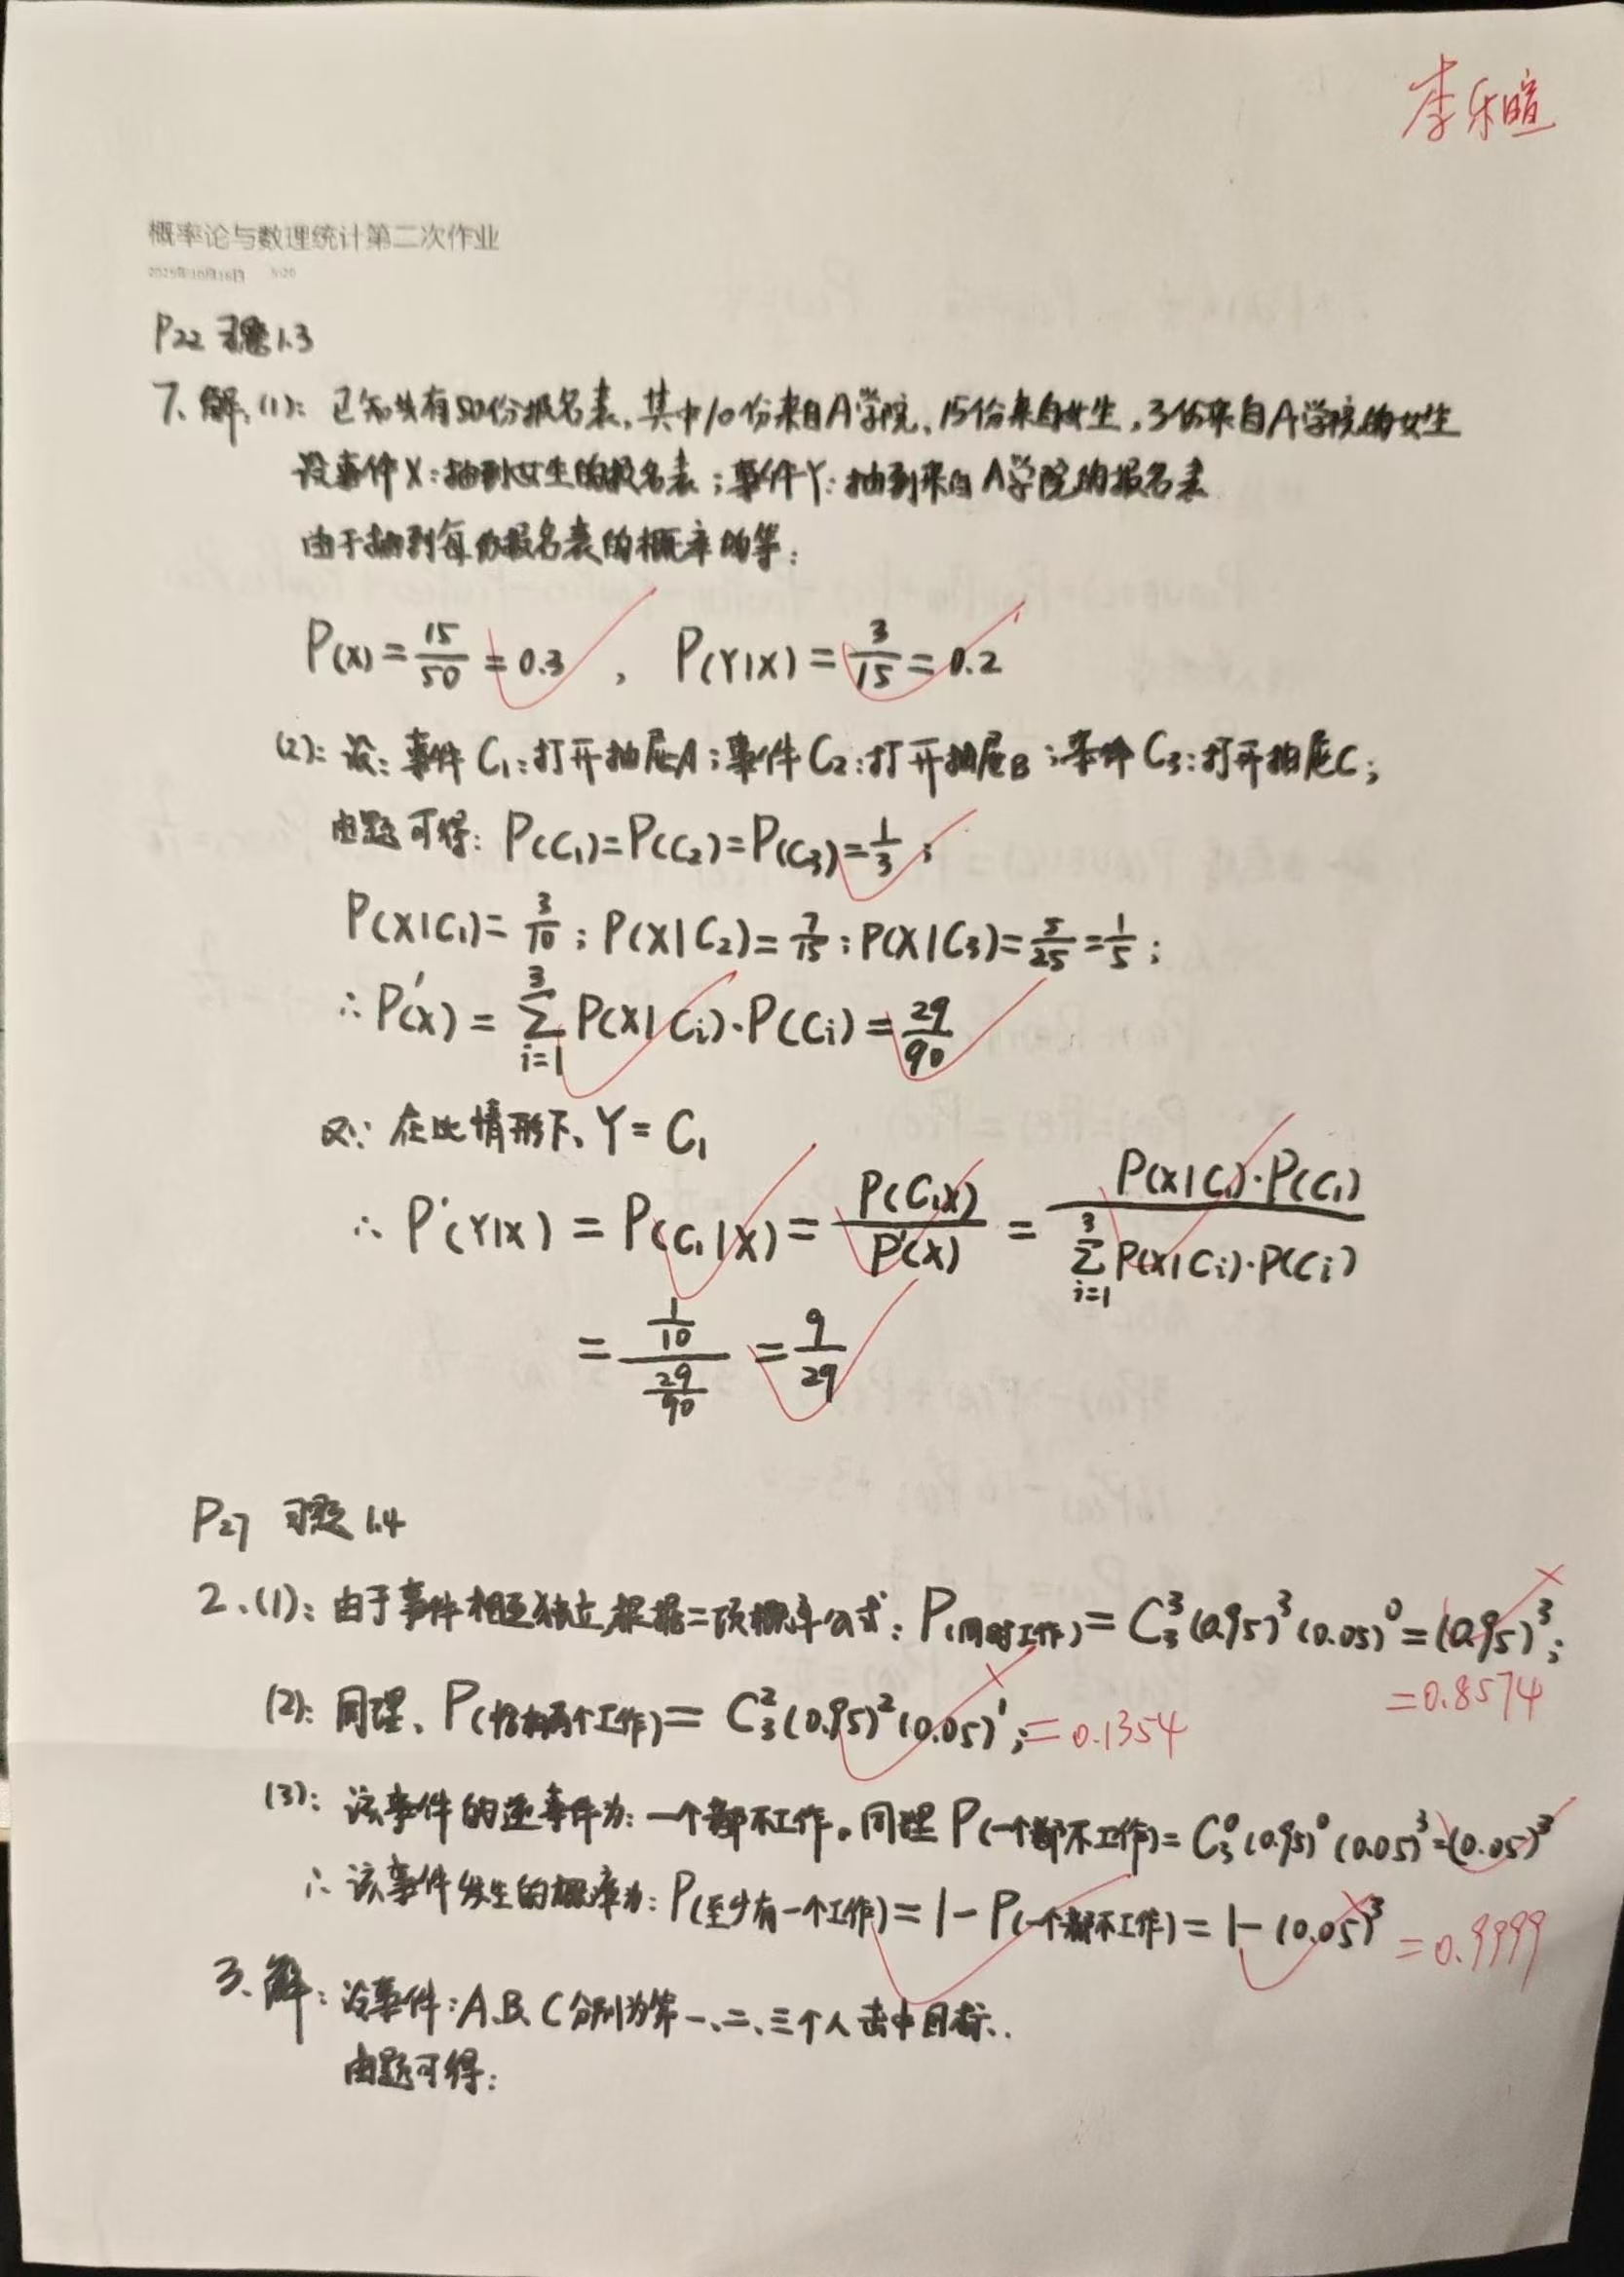 李乐暄
概率论与数理统计第二次作业
2025年10月16日 5:20
P22 习题1.3
7、解:(1): 已知共有50份报名表,其中10份来自A学院,15份来自女生,3份来自A学院的女生
设事件X:抽到女生的报名表;事件Y:抽到来自A学院的报名表
由于抽到每份报名表的概率均等:
P(X) = 15/50 = 0.3 , P(Y|X) = 3/15 = 0.2
(2): 设:事件C₁:打开抽屉A;事件C₂:打开抽屉B;事件C₃:打开抽屉C;
由题可得: P(C₁)=P(C₂)=P(C₃)=1/3;
P(X|C₁)= 3/10 ; P(X|C₂)= 7/15 ; P(X|C₃)= 5/25 = 1/5 ;
∴ P'(X) = Σ_{i=1}^{3} P(X|Cᵢ)·P(Cᵢ) = 29/90
又∵ 在此情形下、Y = C₁
∴ P'(Y|X) = P(C₁|X) = P(C₁X)/P'(X) = P(X|C₁)·P(C₁) / Σ_{i=1}^{3} P(X|Cᵢ)·P(Cᵢ)
= (1/10)/(29/90) = 9/29
P27 习题 1.4
2、(1): 由于事件相互独立,根据二项概率公式: P(同时工作) = C₃³(0.95)³(0.05)⁰ = (0.95)³;
=0.8574
(2): 同理、P(恰有两个工作) = C₃²(0.95)²(0.05)¹; = 0.1354
(3): 该事件的逆事件为: 一个都不工作。同理 P(一个都不工作) = C₃⁰(0.95)⁰(0.05)³=(0.05)³
∴ 该事件发生的概率为: P(至少有一个工作) = 1 - P(一个都不工作) = 1 - (0.05)³ = 0.9999
3、解: 设事件: A、B、C分别为第一、二、三个人击中目标.
由题可得: